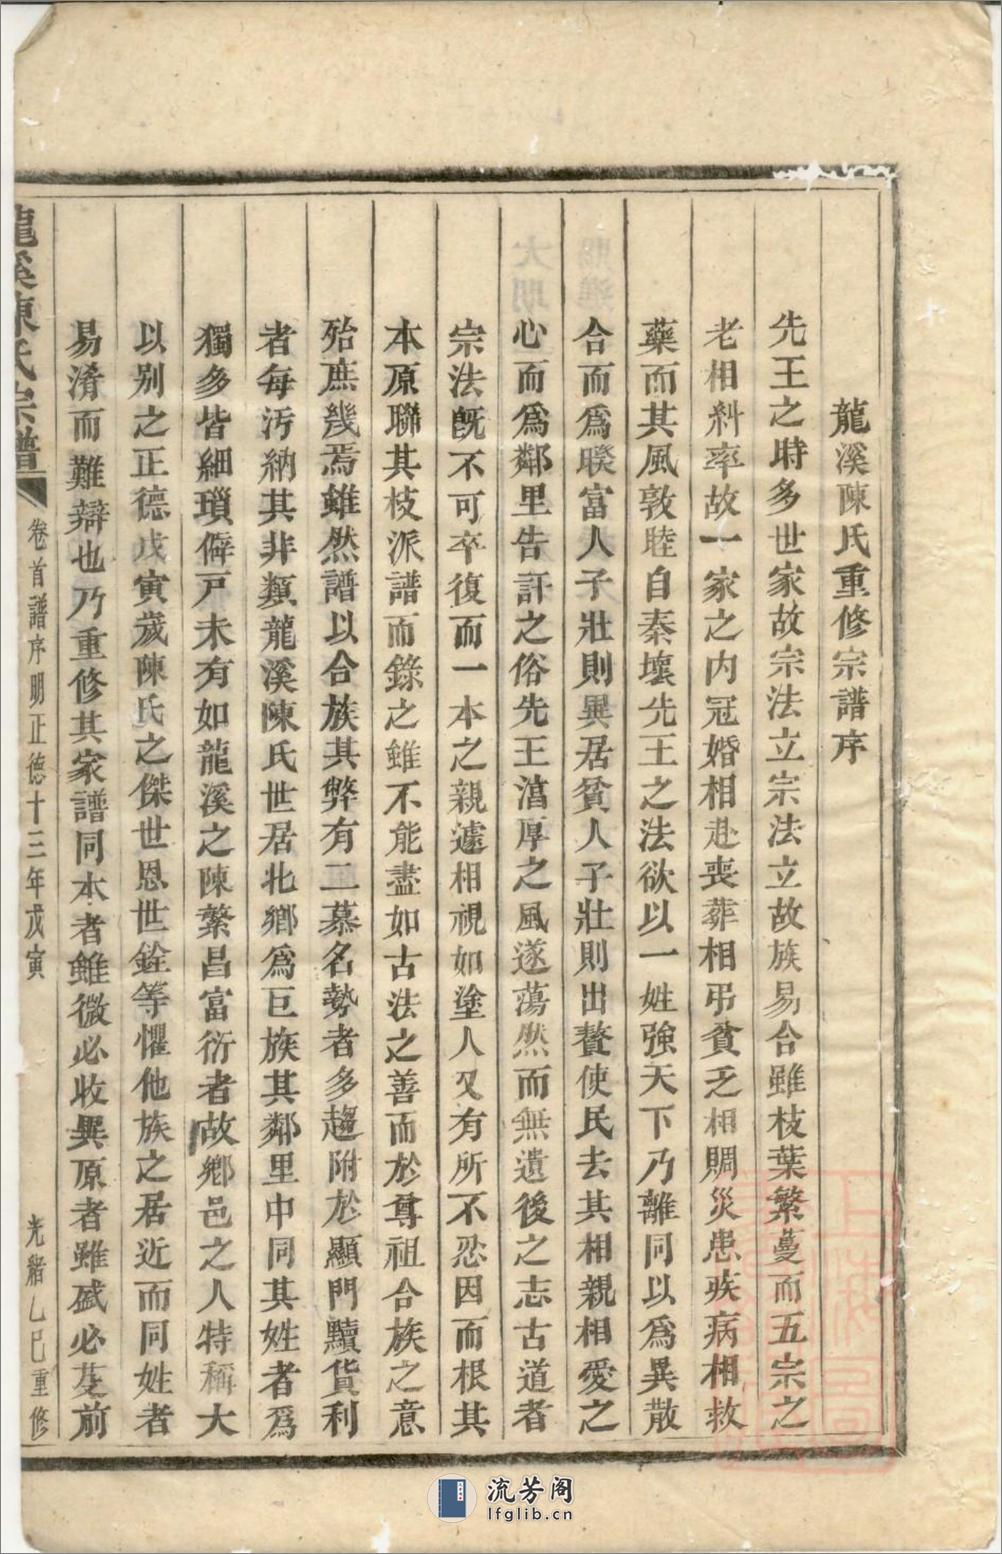 龍溪陳氏重修宗譜序
先王之時多世家故宗法立宗法立故族易合雖枝葉繁蔓而五宗之
老相糾率故一家之内冠婚相赴喪葬相弔貧乏相賙災患疾病相救
藥而其風敦睦自秦壞先王之法欲以一姓強天下乃離同以爲異散
合而爲暌富人子壯則異居貧人子壯則出贅使民去其相親相愛之
心而爲鄰里告訐之俗先王湻厚之風遂蕩然而無遺後之志古道者
宗法既不可卒復而一本之親遽相視如塗人又有所不忍因而根其
本原聯其枝派譜而錄之雖不能盡如古法之善而於尊祖合族之意
殆庶幾焉雖然譜以合族其弊有二慕名勢者多趨附於顯門黷貨利
者每汚納其非類龍溪陳氏世居北鄉爲巨族其鄰里中同其姓者爲
獨多皆細瑣僻戸未有如龍溪之陳繁昌富衍者故鄉邑之人特稱大
以别之正德戊寅歲陳氏之傑世恩世銓等懼他族之居近而同姓者
易淆而難辯也乃重修其家譜同本者雖微必收異原者雖盛必芟前
龍溪陳氏宗譜 卷首譜序明正德十三年戊寅 光緒乙巳重修
流芳阁
lfglib.cn